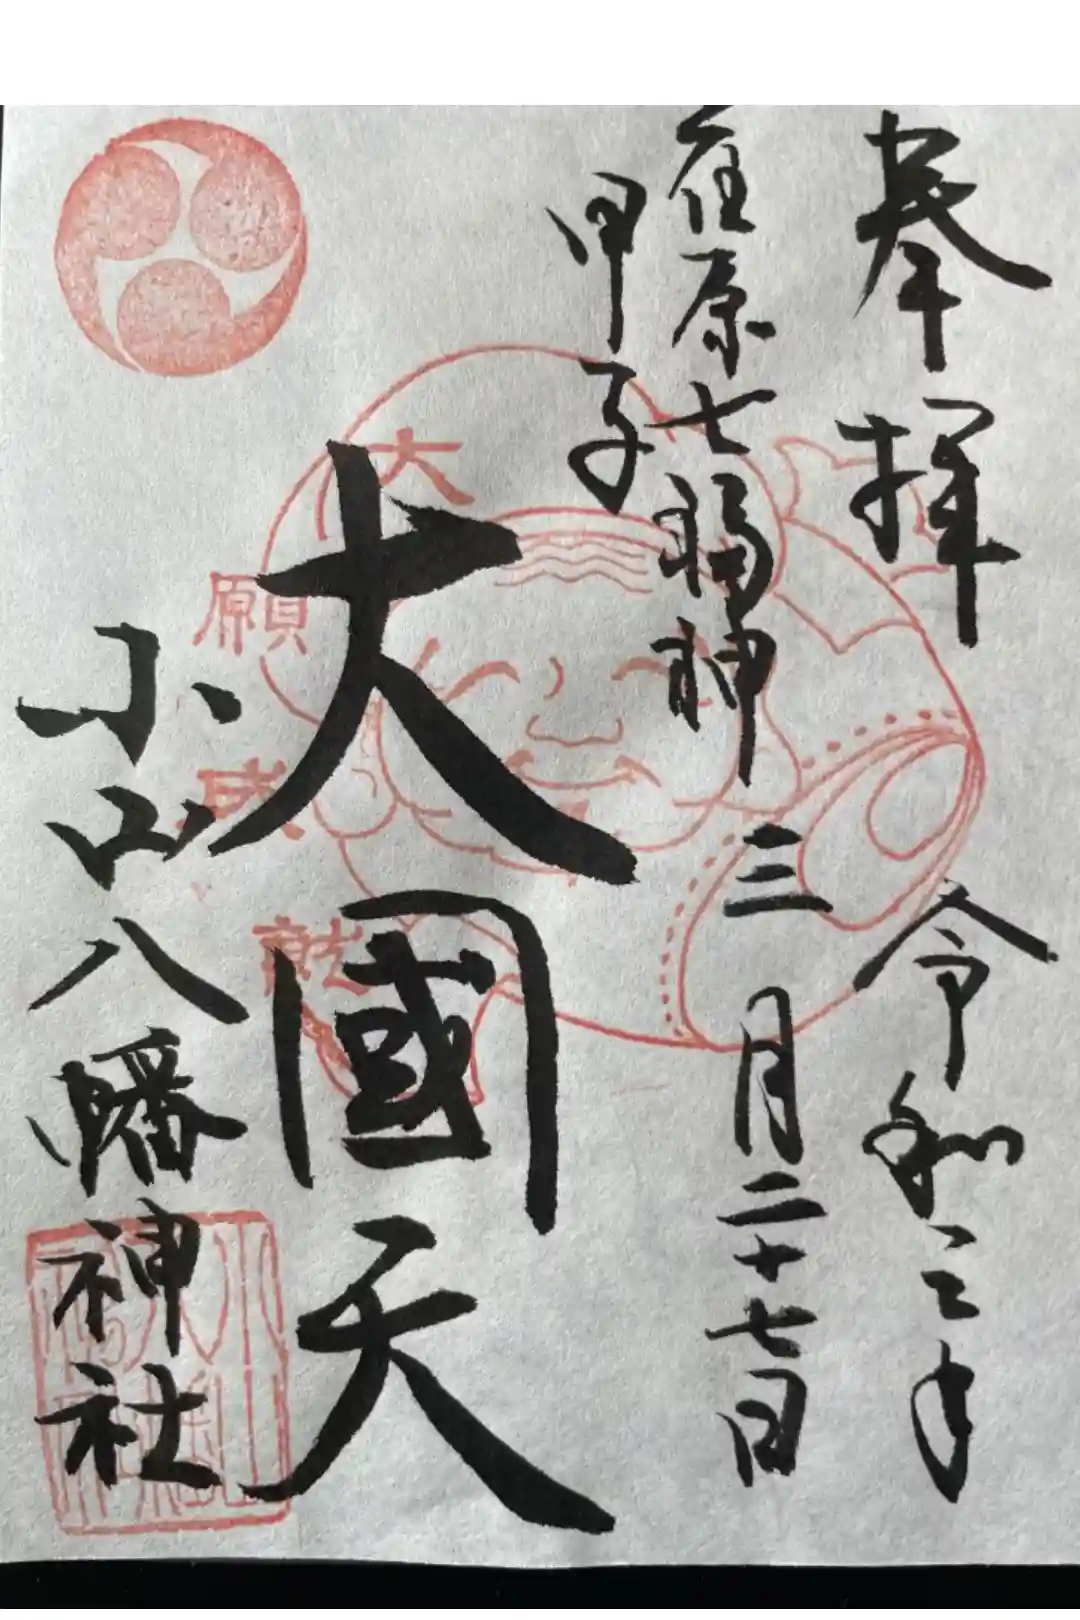 奉拝 令和三年
荏原七福神 三月二十七日
甲子
大國天
小山八幡神社
大願成就